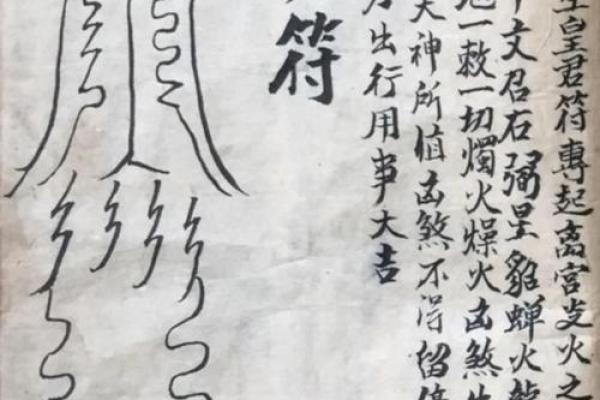 皇君符專起离宮支火之
文召右弼星貂蟬火龍
一敕一切燭火燥火凶煞
天神所值凶煞不得留停
出行用事大吉
符